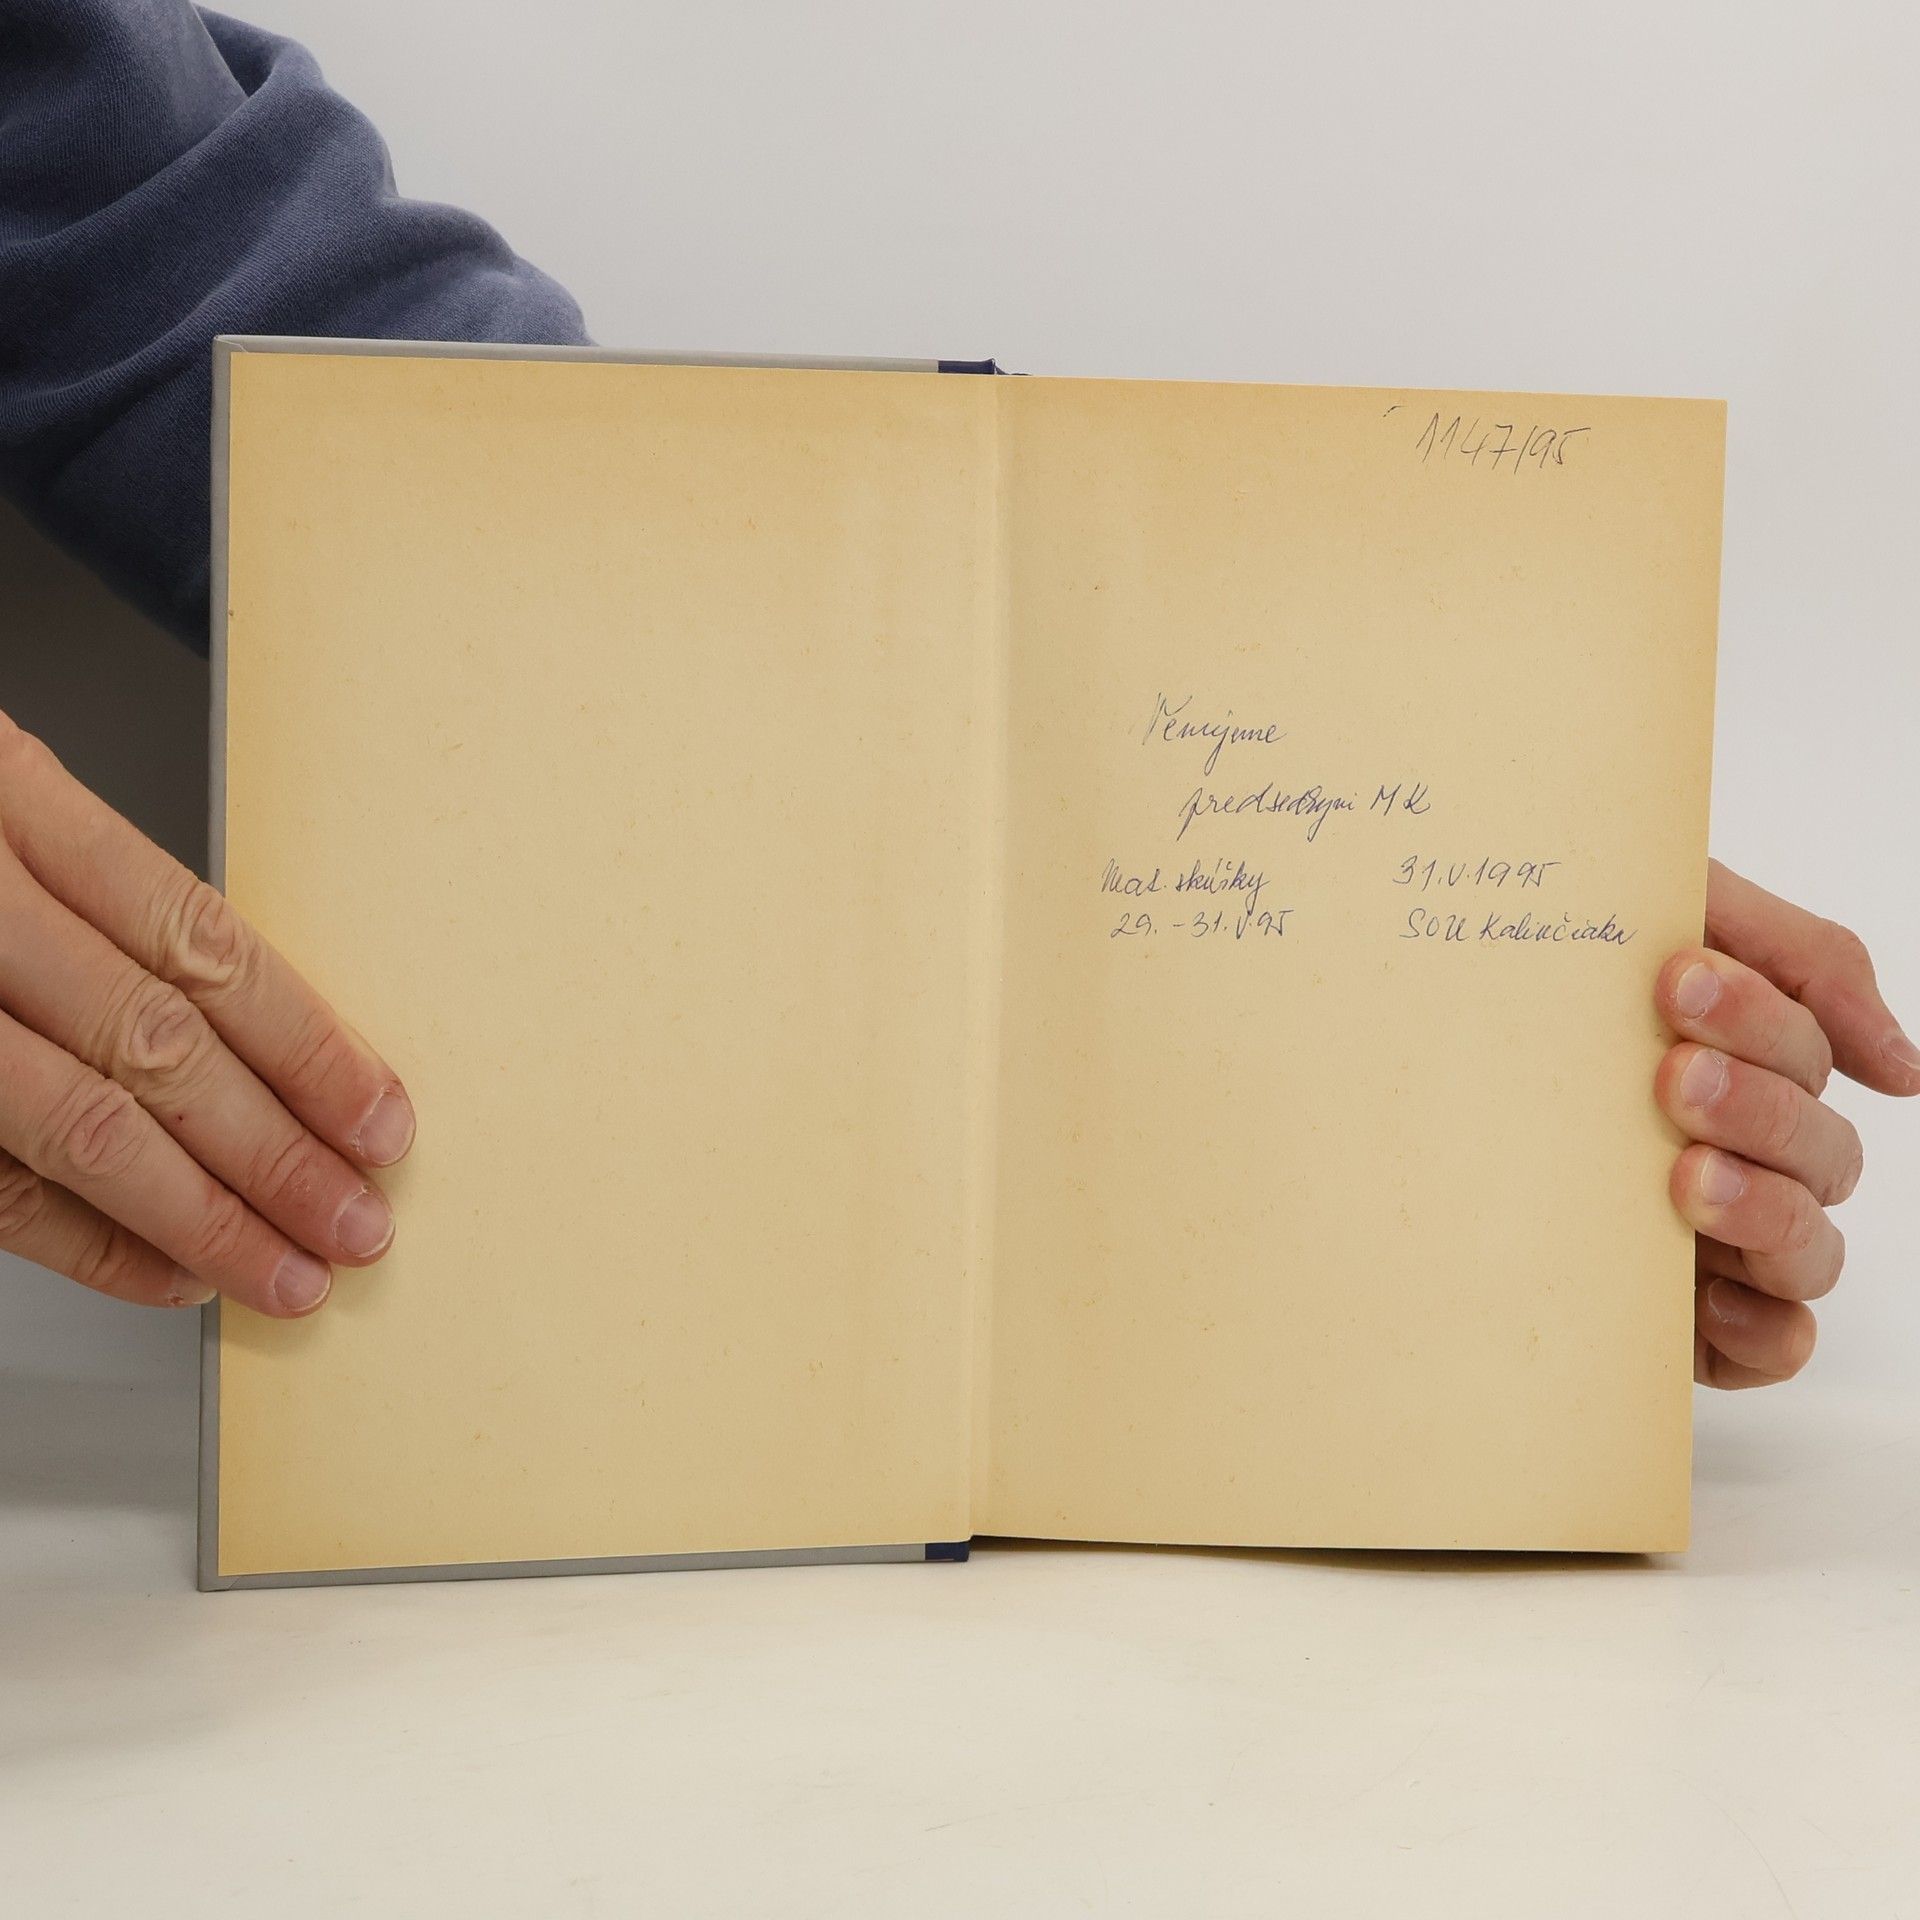 1147/95
Venujeme
predsedkyni MK
Mat. skúšky 31.V.1995
29.-31.V.95 SOU Kalinčiaka